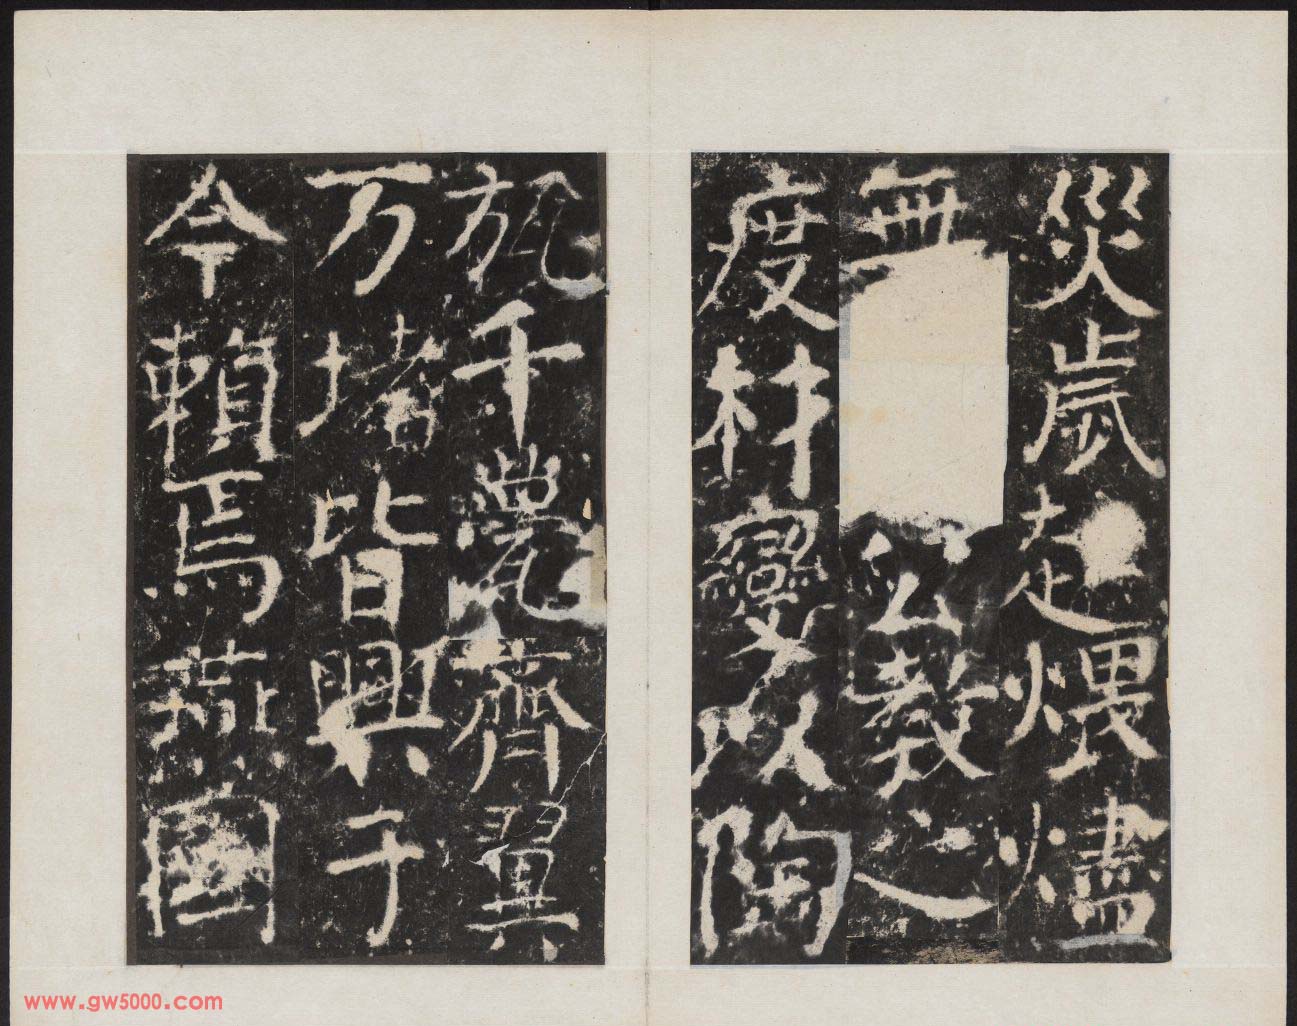 災歲赴煨燼
無公教之
度材變以陶
瓬千甍齊翼
万堵皆興于
今賴焉燕國
www.gw5000.com